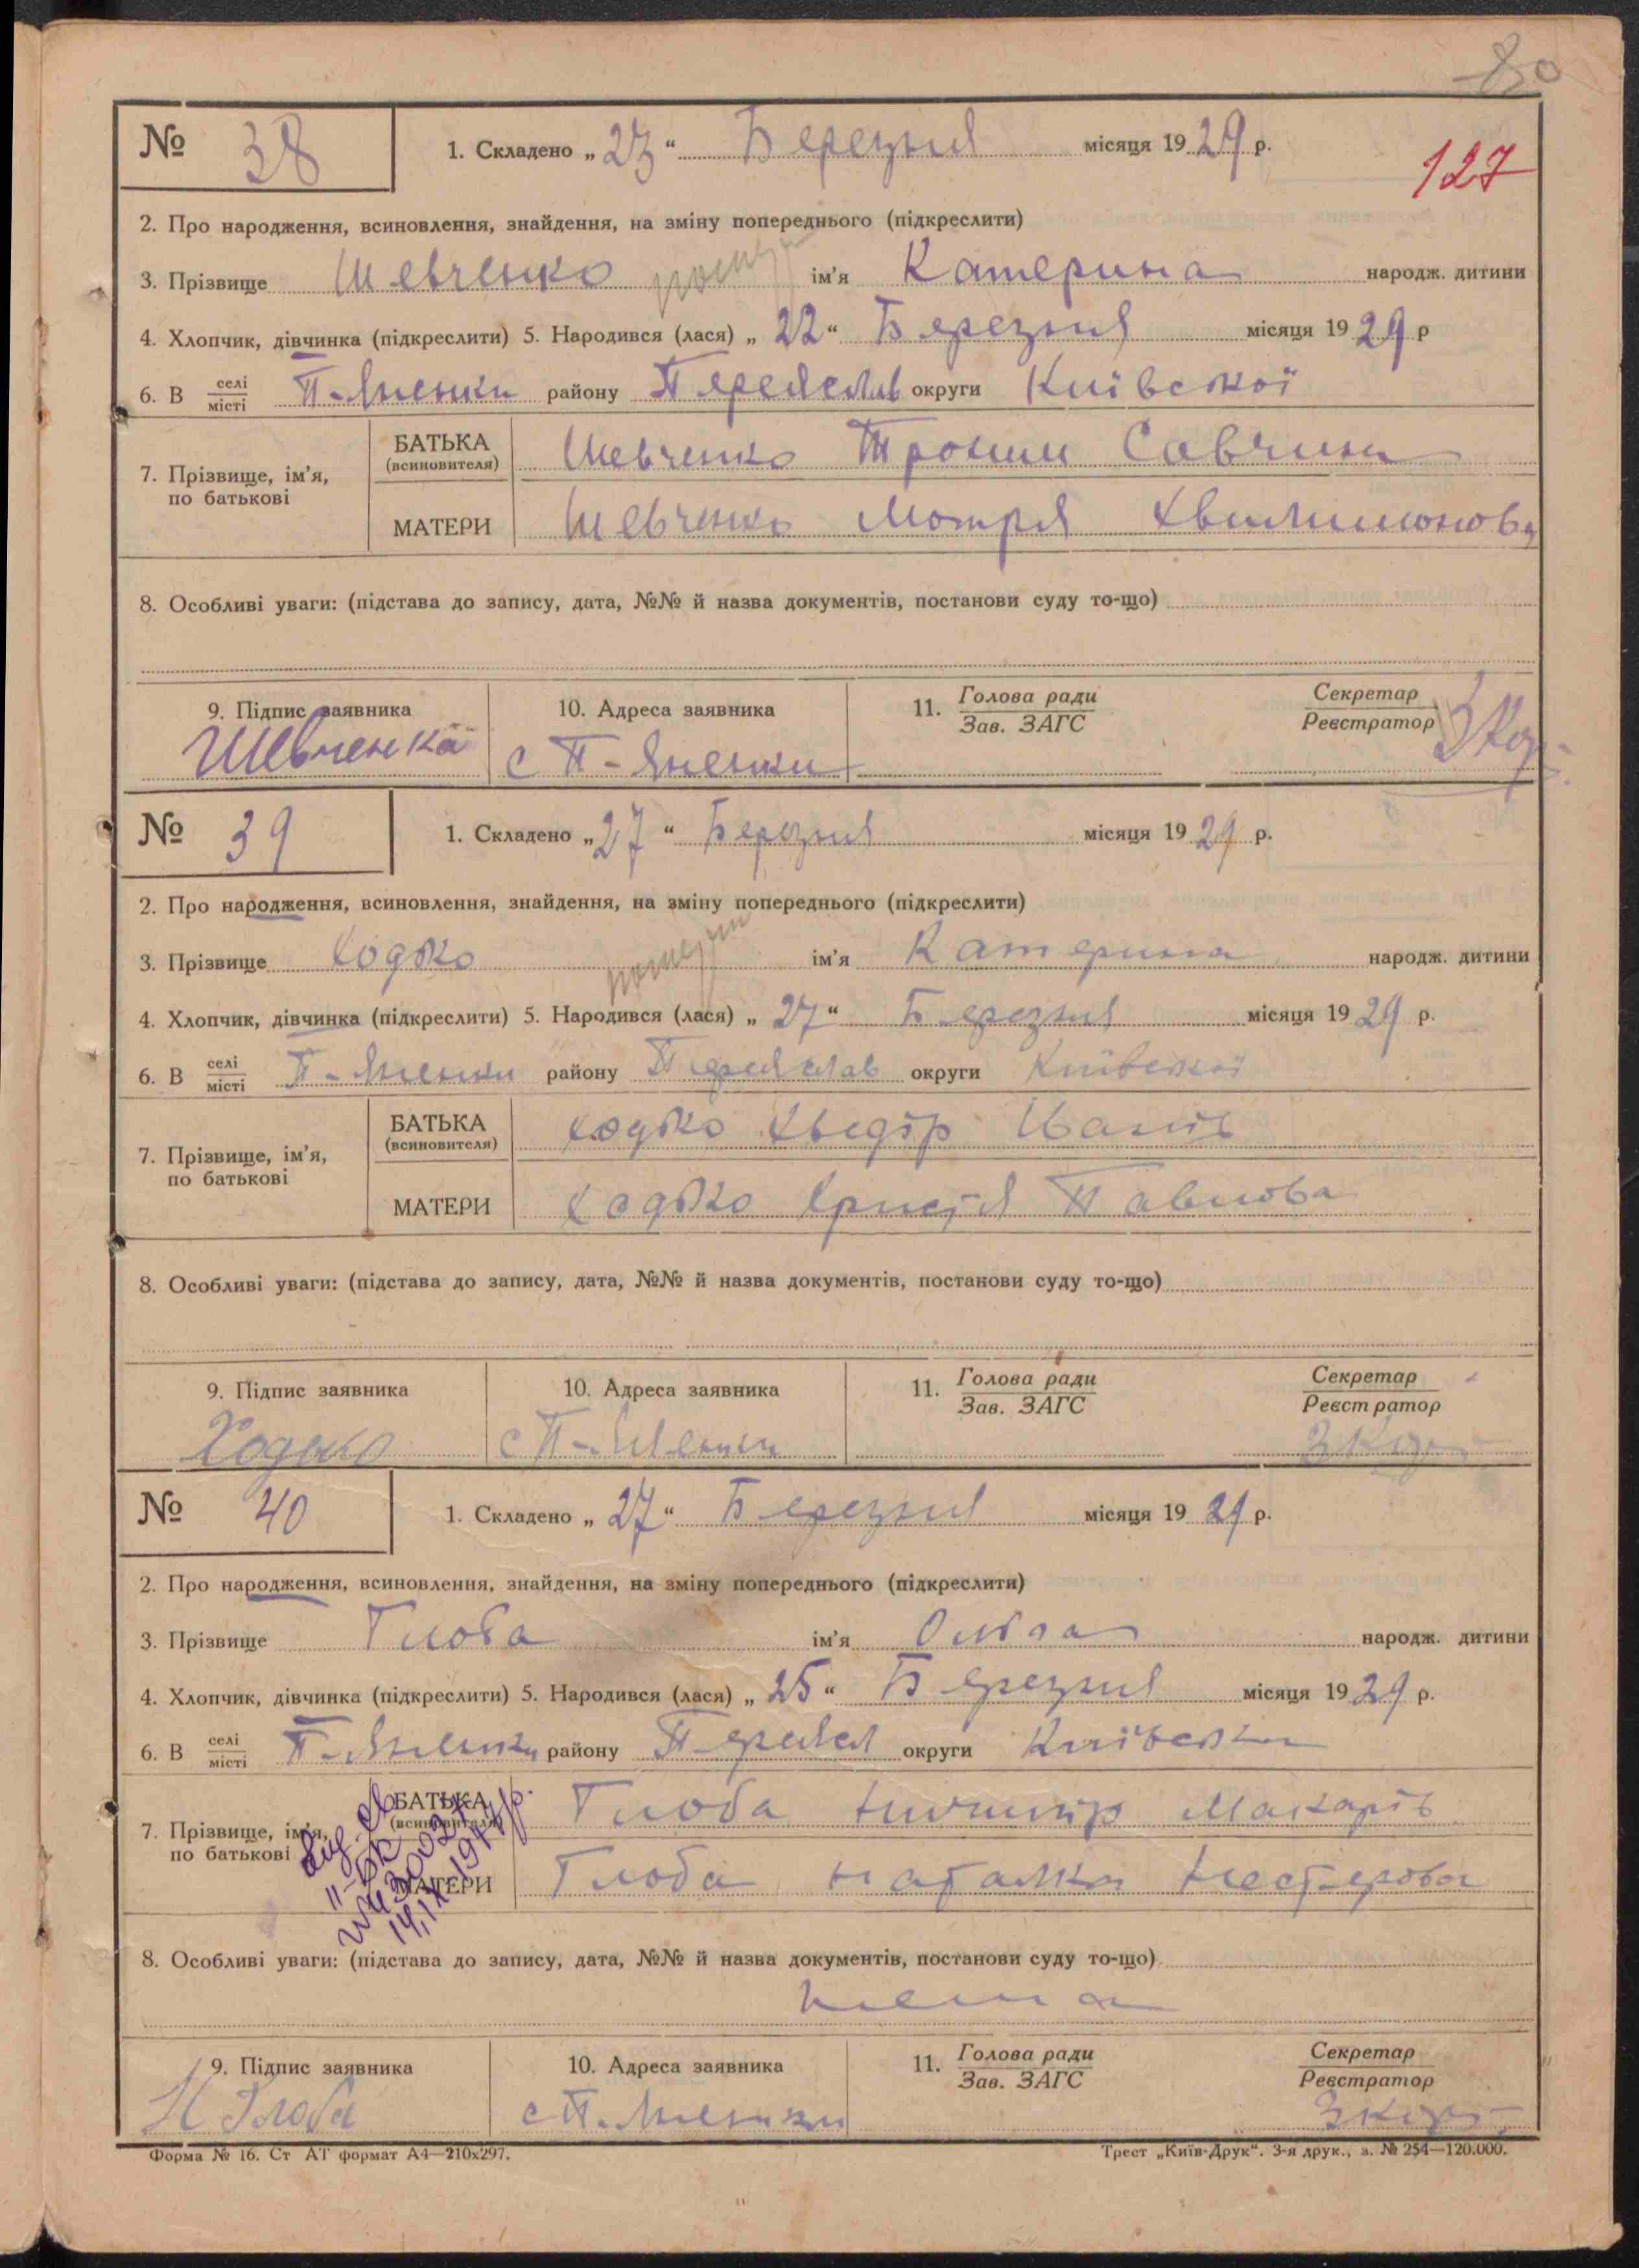 80
127
№ 38 1. Складено „23“ Березня місяця 1929 р.
2. Про народження, всиновлення, знайдення, на зміну попереднього (підкреслити)
3. Прізвище Шевченко ім'я Катерина народж. дитини
4. Хлопчик, дівчинка (підкреслити) 5. Народився (лася) „22“ Березня місяця 1929 р
6. В селі місті П-Яненки району Переяслав округи Київської
7. Прізвище, ім'я, по батькові
БАТЬКА (всиновителя) Шевченко Трохим Савчин
МАТЕРИ Шевченко Мотря Хвилимонова
8. Особливі уваги: (підстава до запису, дата, №№ й назва документів, постанови суду то-що)
9. Підпис заявника 10. Адреса заявника 11. Голова ради Зав. ЗАГС Секретар Реєстратор
Шевченка с П-Яненки
№ 39 1. Складено „27“ Березня місяця 1929 р.
2. Про народження, всиновлення, знайдення, на зміну попереднього (підкреслити)
3. Прізвище Ходько ім'я Катерина народж. дитини
4. Хлопчик, дівчинка (підкреслити) 5. Народився (лася) „27“ Березня місяця 1929 р.
6. В селі місті П-Яненки району Переяслав округи Київської
7. Прізвище, ім'я, по батькові
БАТЬКА (всиновителя) Ходько Хведір Іванів
МАТЕРИ Ходько Христя Павлова
8. Особливі уваги: (підстава до запису, дата, №№ й назва документів, постанови суду то-що)
9. Підпис заявника 10. Адреса заявника 11. Голова ради Зав. ЗАГС Секретар Реєстратор
Ходько с П-Яненки
№ 40 1. Складено „27“ Березня місяця 1929 р.
2. Про народження, всиновлення, знайдення, на зміну попереднього (підкреслити)
3. Прізвище Глоба ім'я Ольга народж. дитини
4. Хлопчик, дівчинка (підкреслити) 5. Народився (лася) „25“ Березня місяця 1929 р.
6. В селі місті П-Яненки району Переясл округи Київськи
7. Прізвище, ім'я, по батькові
БАТЬКА (всиновителя) Глоба Ничипір Макарів
МАТЕРИ Глоба Наталка Нестерова
8. Особливі уваги: (підстава до запису, дата, №№ й назва документів, постанови суду то-що)
нема
9. Підпис заявника 10. Адреса заявника 11. Голова ради Зав. ЗАГС Секретар Реєстратор
Н Глоба с П-Яненки
Форма № 16. Ст АТ формат А4—210х297. Трест „Київ-Друк“. 3-я друк., з. № 254—120.000.